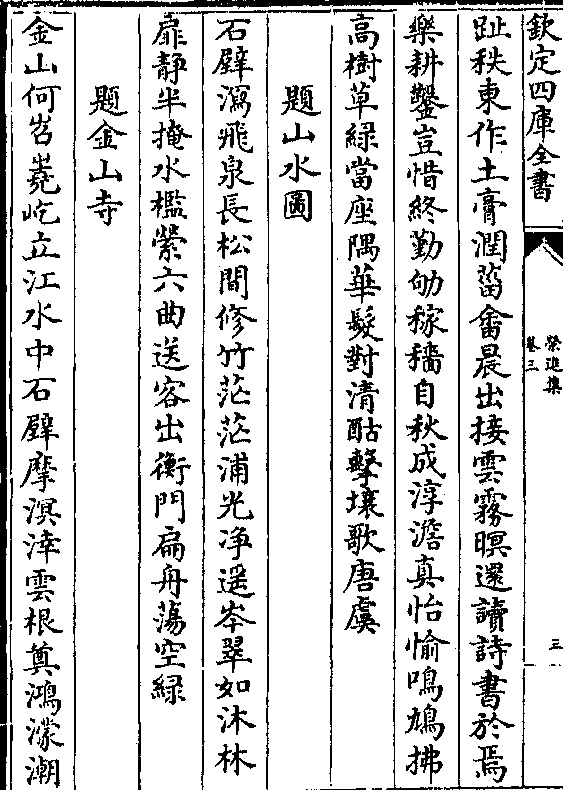 欽定四庫全書
榮進集
卷三
三
趾秩東作土膏潤菑畬晨出接雲霧暝還讀詩書於焉
樂耕鑿豈惜終勤劬稼穡自秋成淳澹真怡愉鳴鳩拂
高樹草緑當座隅華髮對清酤擊壤歌唐虞
題山水圖
石壁瀉飛泉長松間修竹茫茫浦光净遥岑翠如沐林
扉靜半掩水檻縈六曲送客出衡門扁舟蕩空緑
題金山寺
金山何岧嶤屹立江水中石壁摩溟涬雲根奠鴻濛潮